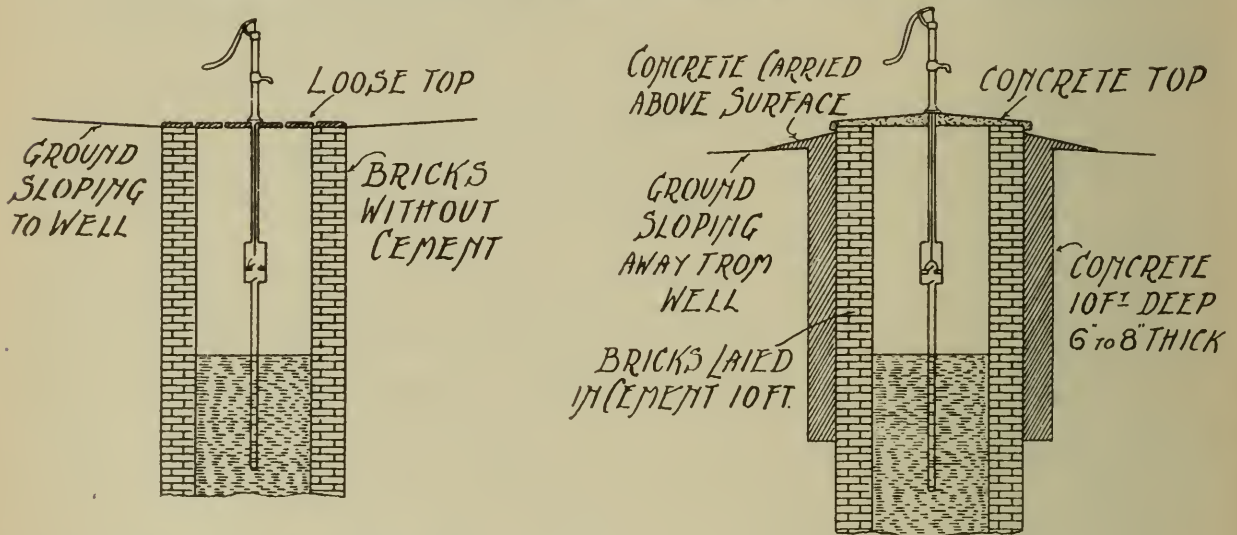 LOOSE TOP
GROUND
SLOPING
TO WELL
BRICKS
WITHOUT
CEMENT
CONCRETE CARRIED
ABOVE SURFACE
CONCRETE TOP
GROUND
SLOPING
AWAY FROM
WELL
BRICKS LAIED
IN CEMENT 10 FT.
CONCRETE
10 FT DEEP
6" TO 8" THICK